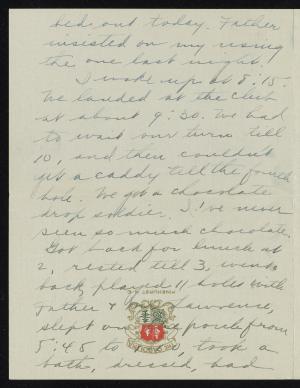 bed out today. Father
insisted on my using
the one last night.
I woke up at 8:15.
We landed at the club
at about 9:30. We had
to wait our turn till
10, and then couldn't
get a caddy till the fourth
hole. We got a chocolate
drop soldier. I've never
seen so much chocolate.
Got back for lunch at
2, rested till 3, went
back, played 11 holes with
Father & Lawrence,
slept on the porch from
5:45 to took a
bath, dressed, had
PINEHURST N.C.